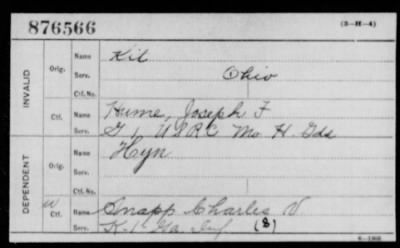 876566 (3-H-4)
INVALID
Orig. Name Kil
Serv. Ohio
Ctf. No.
Ctf. Name Hume, Joseph F
Serv. G 1 U.S.R.C. Mo H. Gds
DEPENDENT
Orig. Name Hyn
Serv.
Ctf. No.
W Ctf. Name Snapp Charles V
Serv. K. 1 Ga. Inf (8)